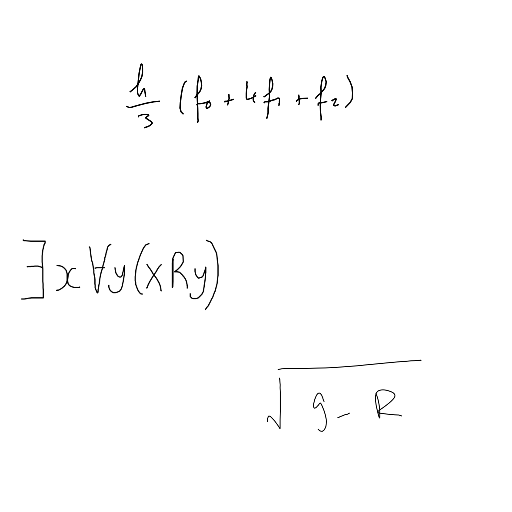 h/3 (f₀ + 4f₁ + f₂)
∃x∀y(xRy)
√(g - R)